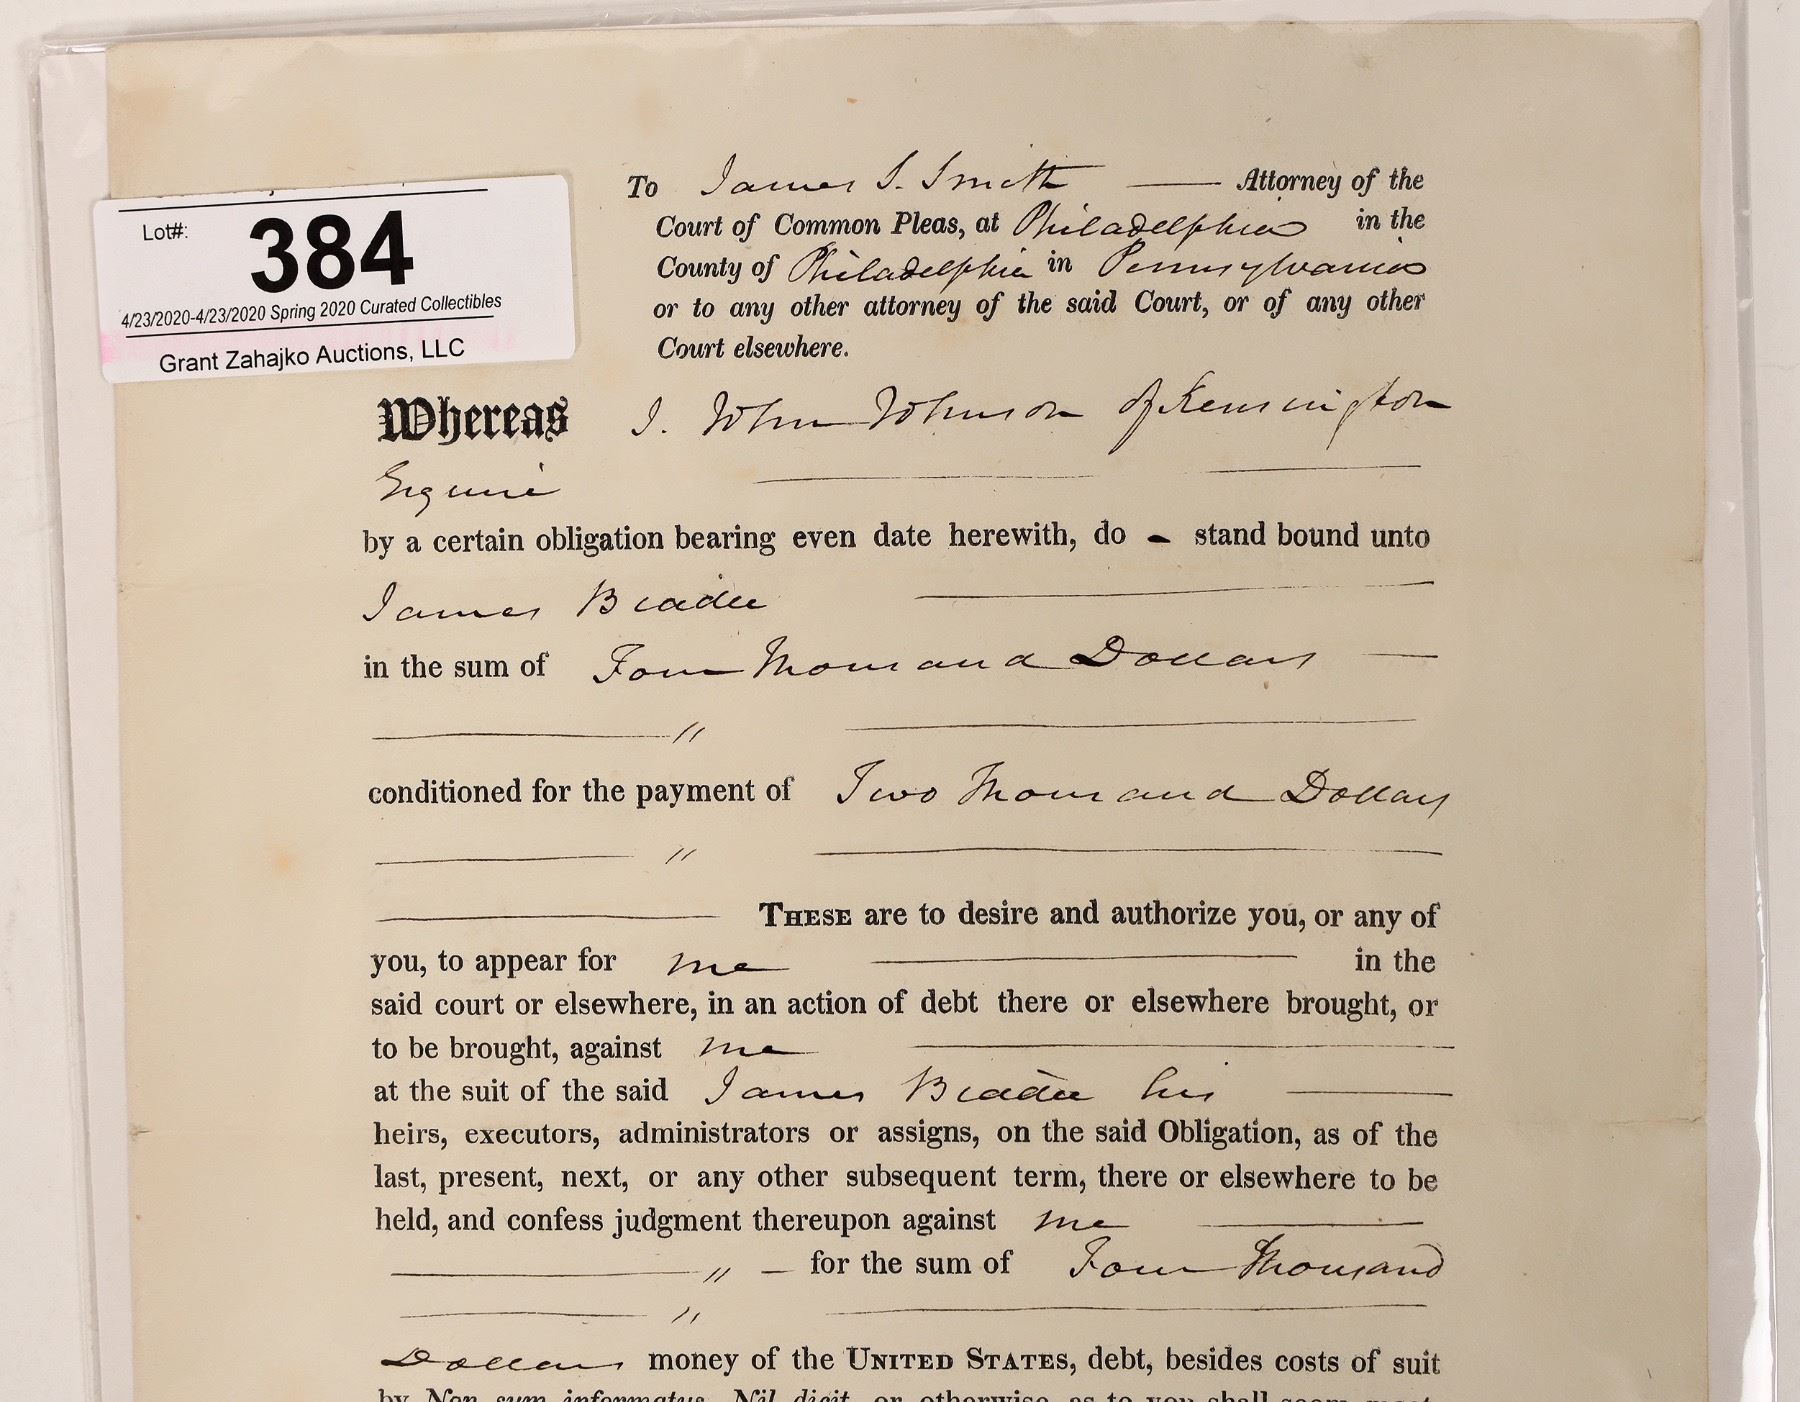 Lot#:
384
4/23/2020-4/23/2020 Spring 2020 Curated Collectibles
Grant Zahajko Auctions, LLC
To James S. Smith Attorney of the
Court of Common Pleas, at Philadelphia in the
County of Philadelphia in Pennsylvania
or to any other attorney of the said Court, or of any other
Court elsewhere.
Whereas I. John Johnson of Kensington
Esquire
by a certain obligation bearing even date herewith, do - stand bound unto
James
in the sum of Four Thousand Dollars
"
conditioned for the payment of Two Thousand Dollars
"
THESE are to desire and authorize you, or any of
you, to appear for me in the
said court or elsewhere, in an action of debt there or elsewhere brought, or
to be brought, against me
at the suit of the said James his
heirs, executors, administrators or assigns, on the said Obligation, as of the
last, present, next, or any other subsequent term, there or elsewhere to be
held, and confess judgment thereupon against me
" — for the sum of Four Thousand
"
Dollars money of the UNITED STATES, debt, besides costs of suit
by Non sum informatus, Nil dicit, or otherwise, as to you shall seem meet